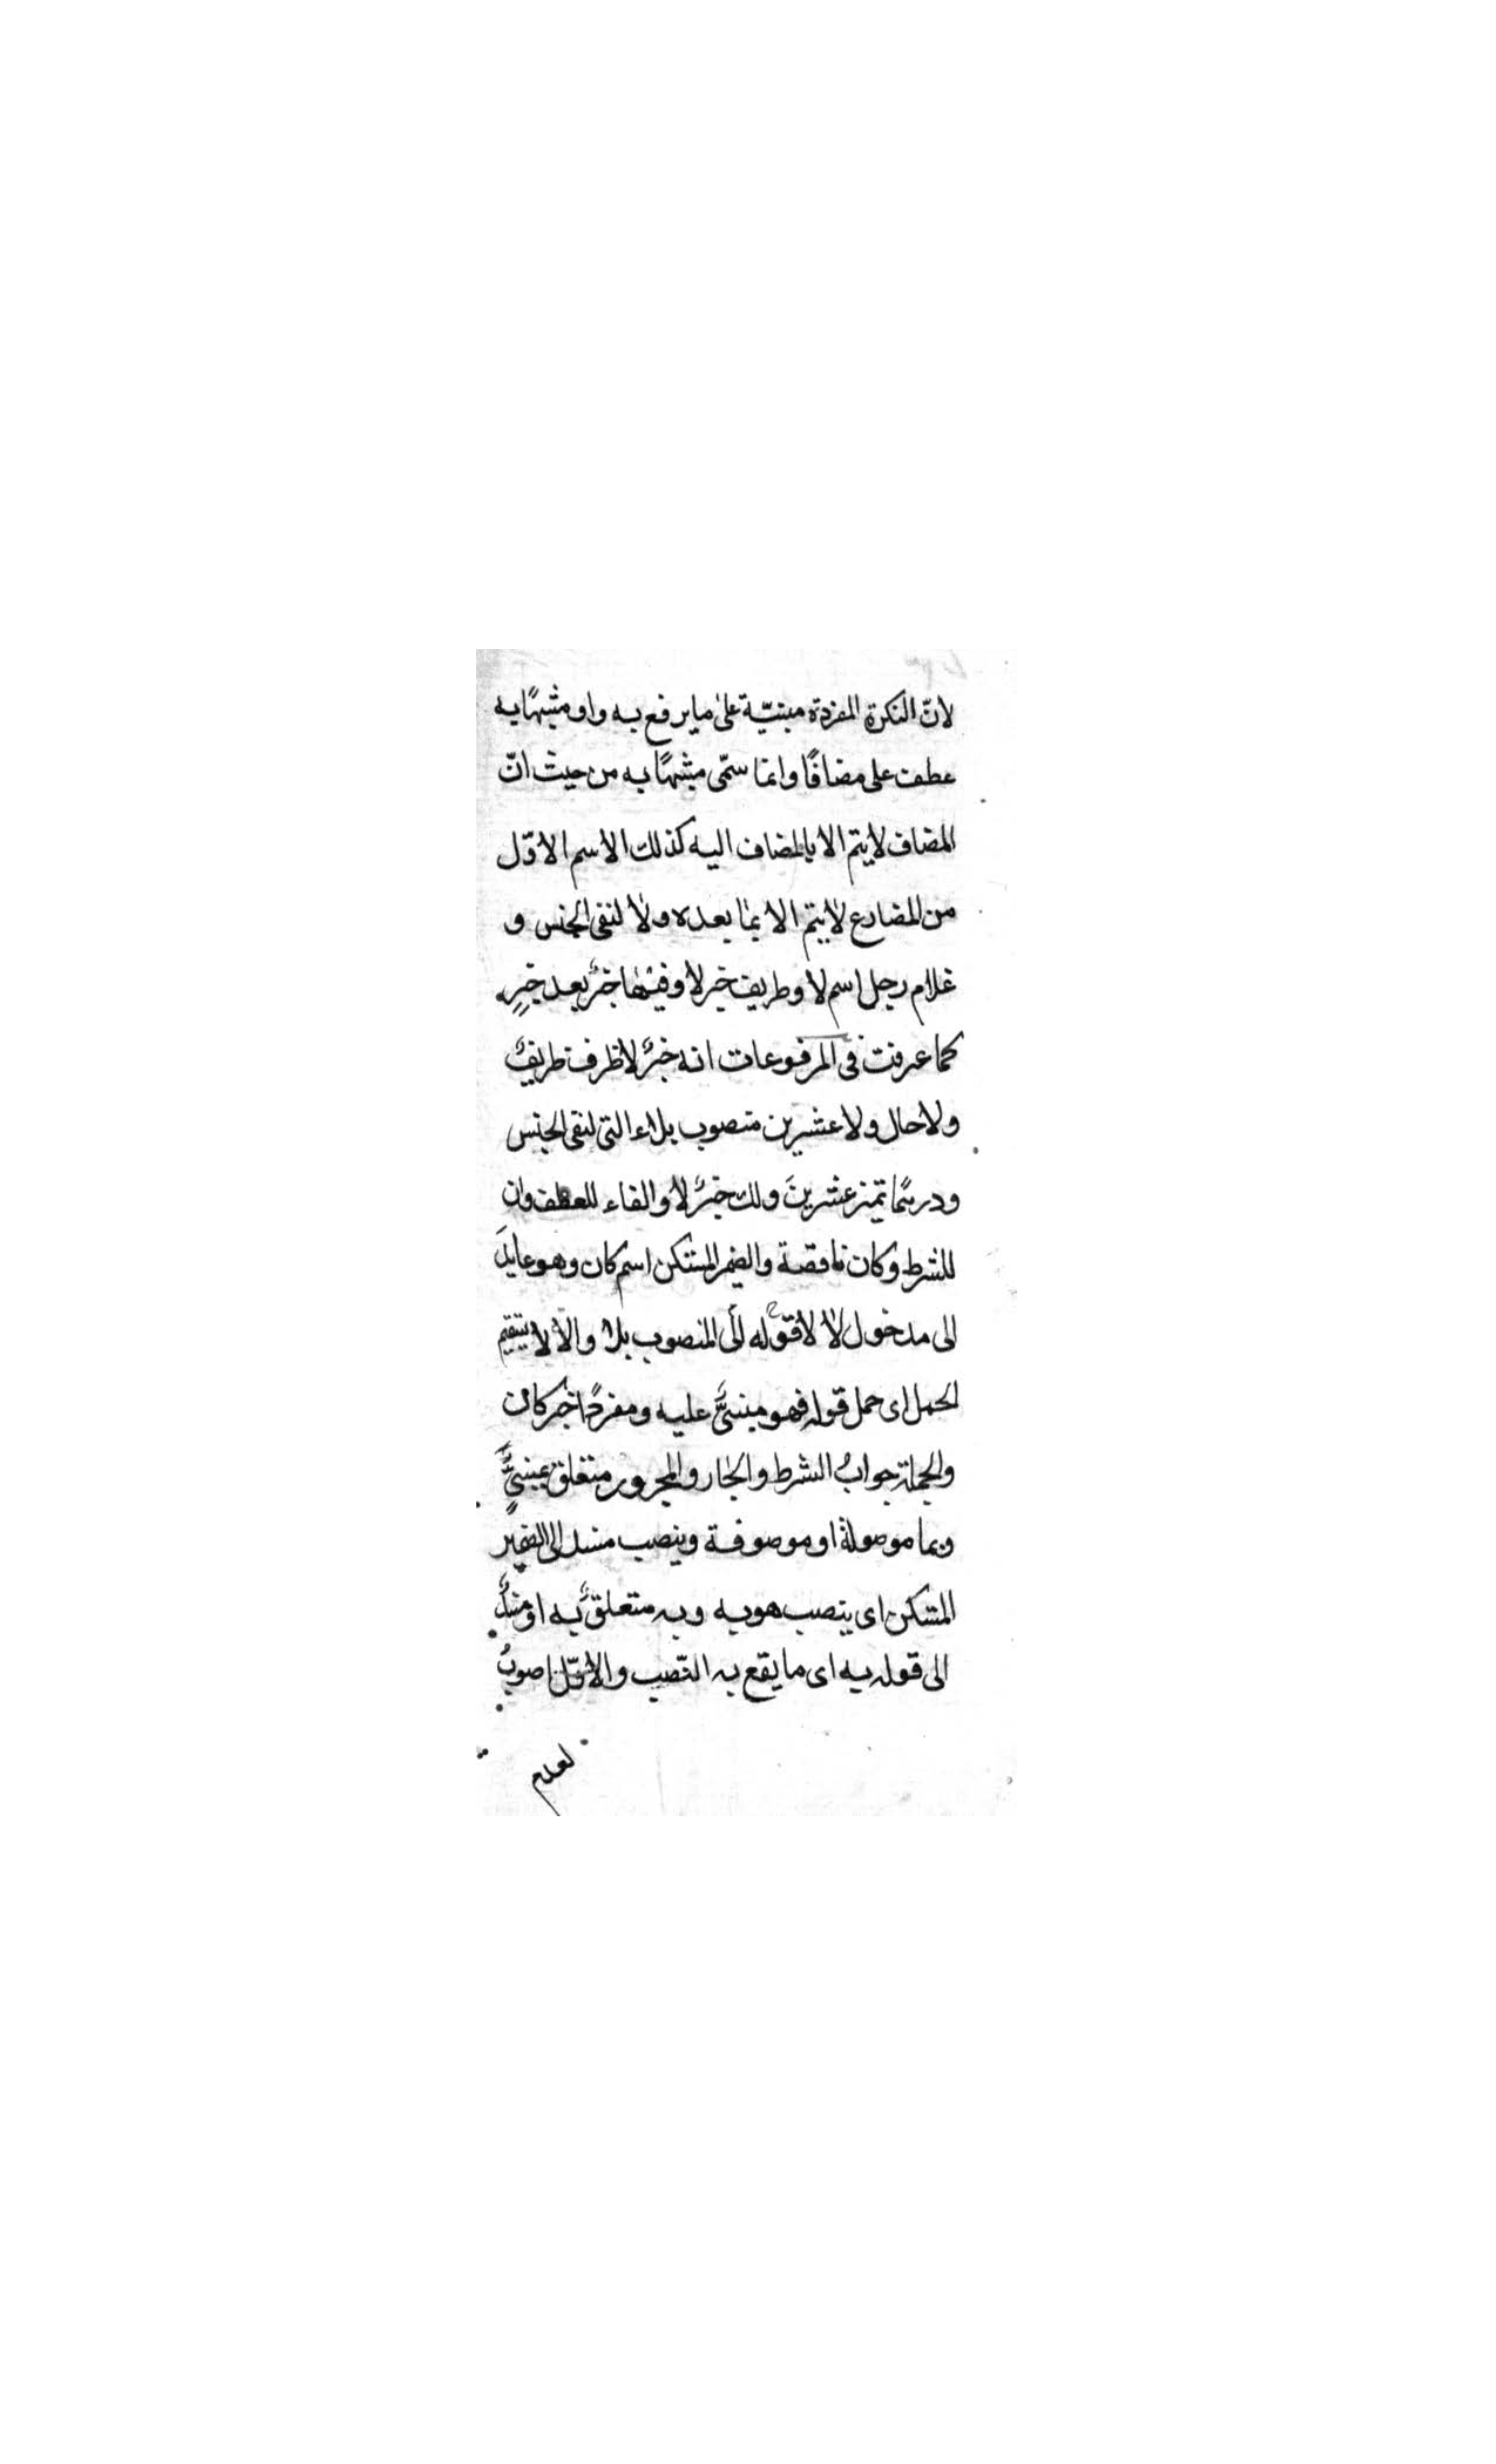 لانّ النكرة المفردة مبنيّة على ما يرفع به واو مشبهًا به
عطف على مضافًا وانما سمّى مشبهًا به من حيث انّ
المضاف لا يتم الا بالمضاف اليه كذلك الاسم الاوّل
من المضارع لا يتم الا بما بعده ولا لنفى الجنس و
غلام رجل اسم لا وظريف خبر لا وفيها خبرٌ بعد خبرٍ
كما عرفت فى المرفوعات انه خبرٌ لا ظرف ظريفٌ
ولا حال ولا عشرين منصوب بلاء التى لنفى الجنس
ودرهمًا تميز عشرينَ ولك خبرٌ لا والفاء للعطف وان
للشرط وكان ناقصة والضمر المستكن اسم كان وهو عايد
الى مدخول لا لا قوله الى المنصوب بلا والا لا يستقيم
الحمل اى حمل قوله فهو مبنىٌّ عليه ومفردًا خبر كان
والجملة جوابُ الشرط والجار والمجرور متعلق بمبنىٍّ
وبما موصولة او موصوفة وينصب مسند الى الضمير
المستكن اى ينصب هو به وبه متعلقٌ به او مسندٌ
الى قوله به اى ما يقع به النّصب والاوّل اصوبُ
لعدم